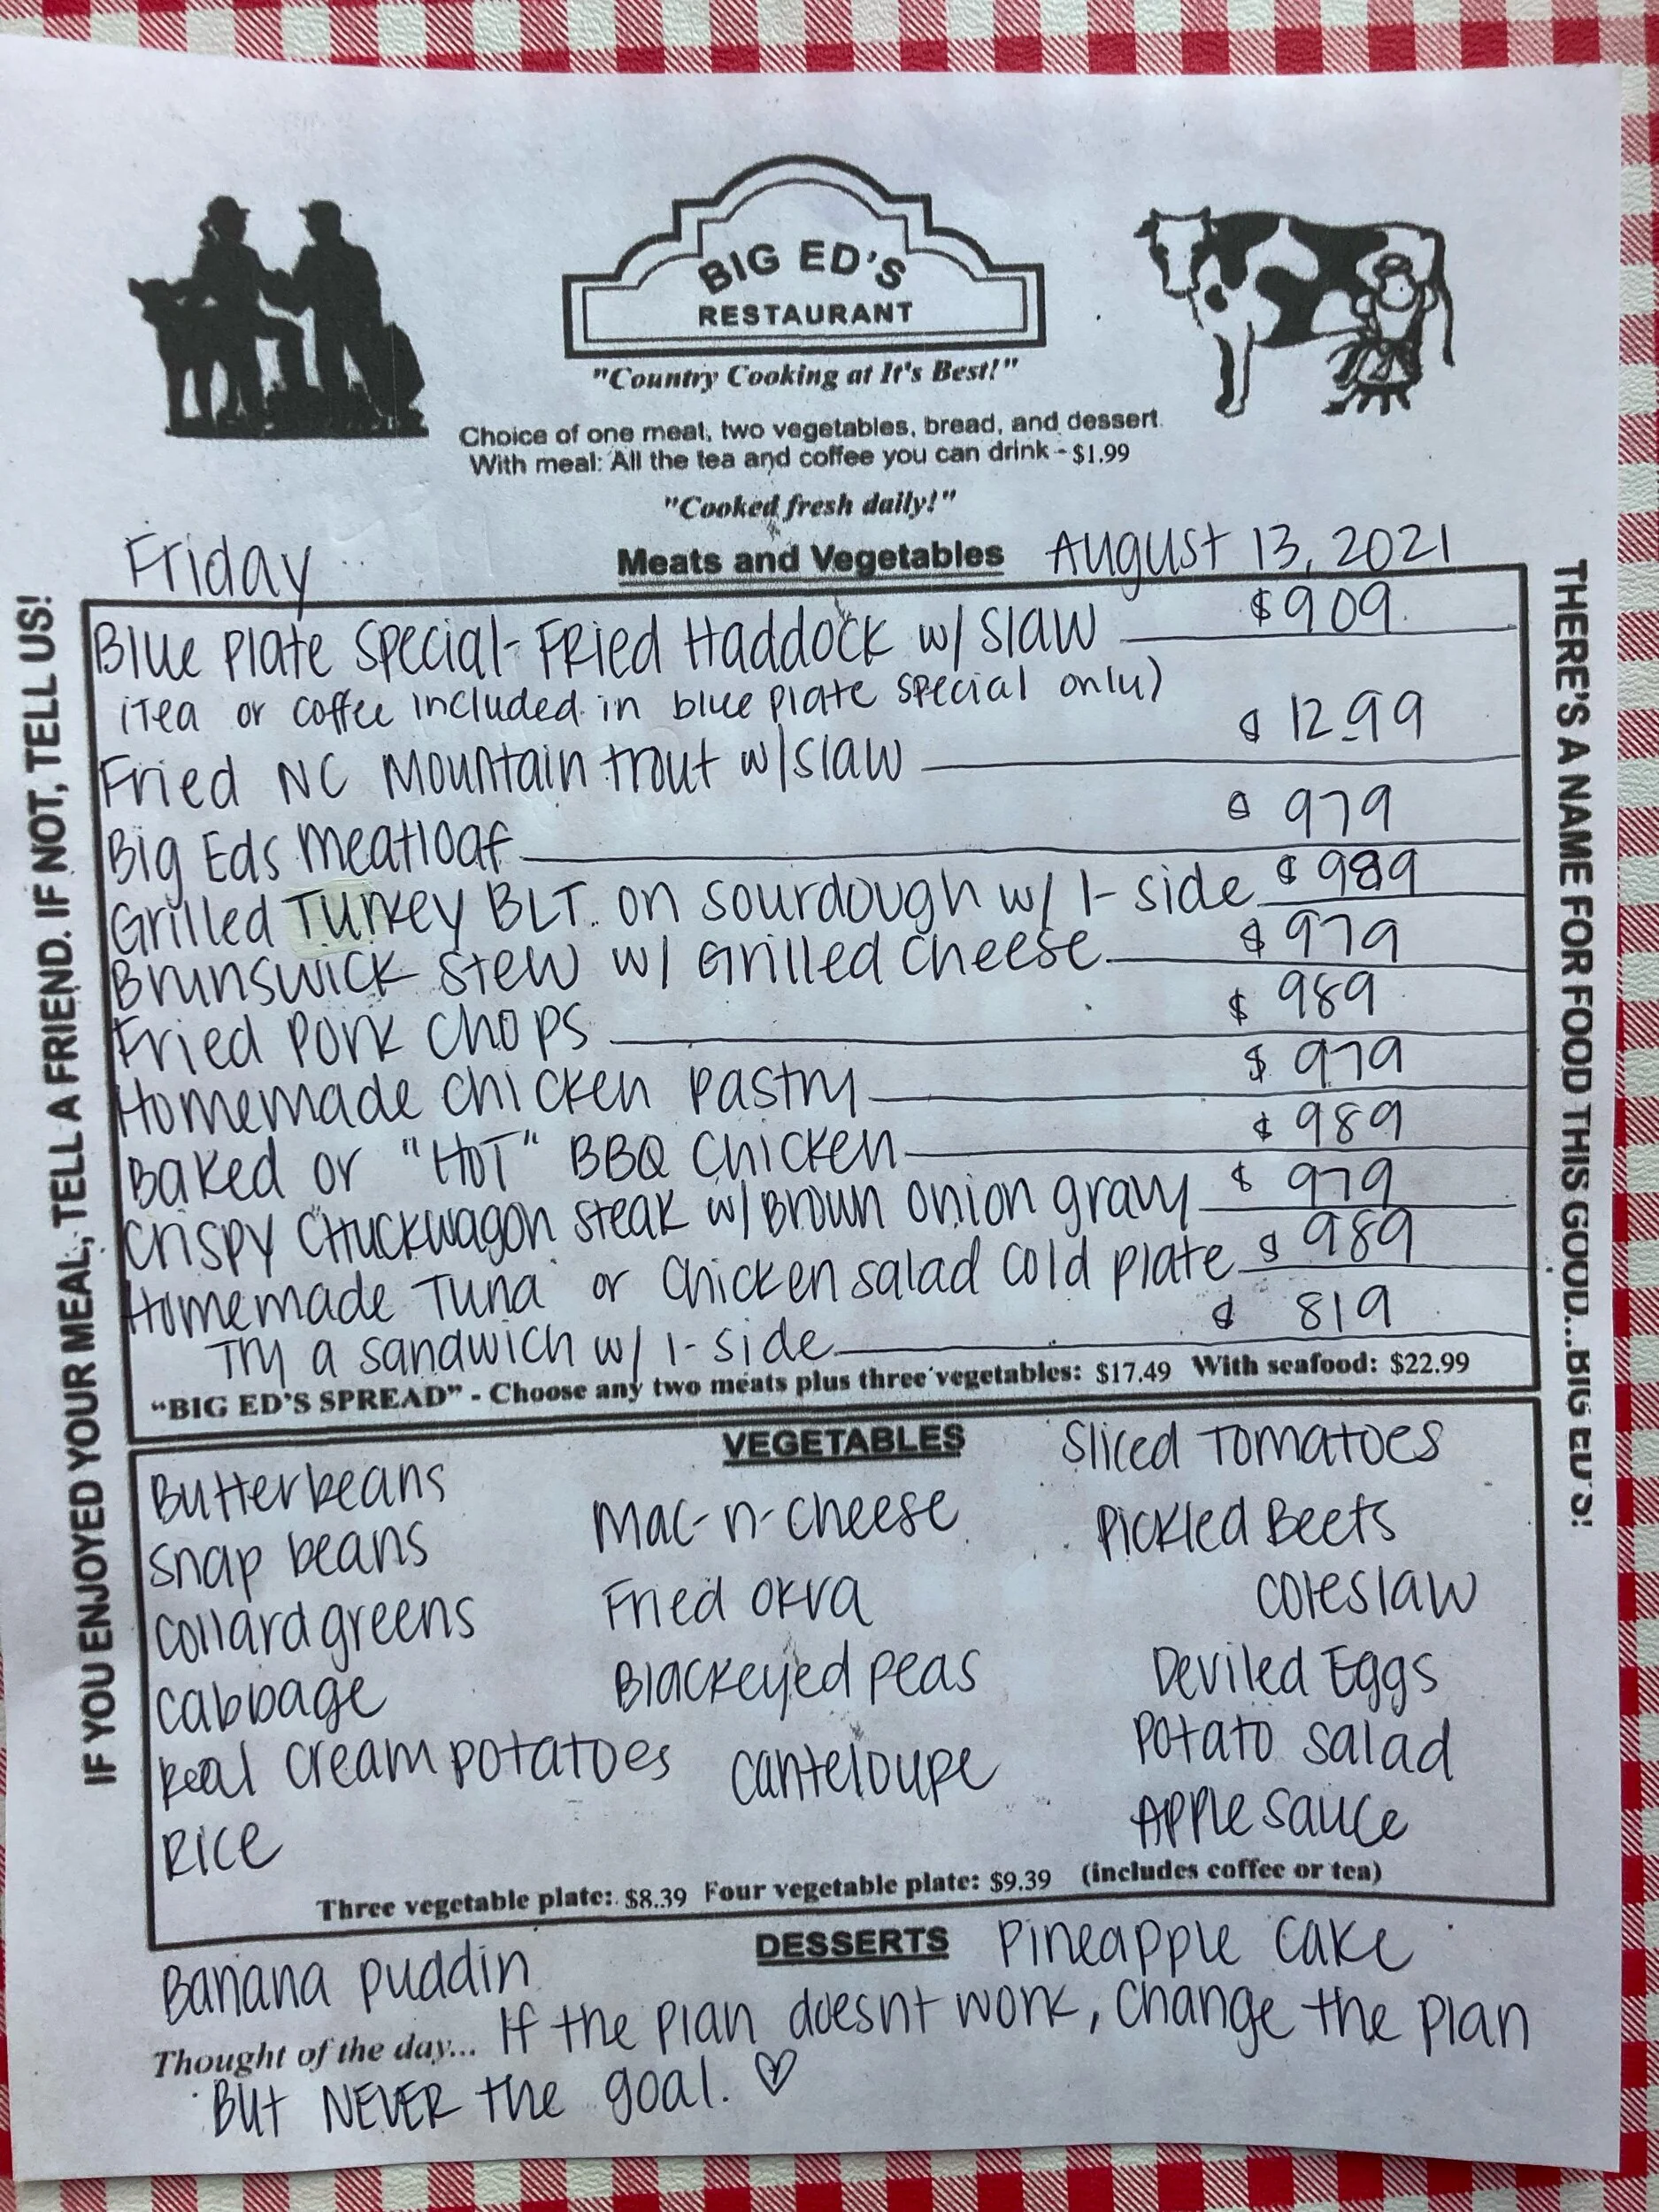 BIG ED'S
RESTAURANT
"Country Cooking at It's Best!"
Choice of one meat, two vegetables, bread, and dessert.
With meal: All the tea and coffee you can drink - $1.99
"Cooked fresh daily!"
Friday Meats and Vegetables August 13, 2021
Blue Plate Special - Fried Haddock w/ Slaw $909
(Tea or coffee included in blue plate special only)
Fried NC Mountain trout w/slaw $12.99
Big Eds meatloaf $979
Grilled Turkey BLT on sourdough w/ 1-side $989
Brunswick stew w/ Grilled Cheese $979
Fried Pork Chops $989
Homemade Chicken Pastry $979
Baked or "HOT" BBQ Chicken $989
Crispy Chuckwagon steak w/Brown onion gravy $979
Homemade Tuna or Chicken salad Cold Plate $989
Try a sandwich w/ 1-side $819
"BIG ED'S SPREAD" - Choose any two meats plus three vegetables: $17.49 With seafood: $22.99
VEGETABLES
Butterbeans
Snap beans
Collard greens
Cabbage
Real Cream potatoes
Rice
Mac-n-cheese
Fried okra
Blackeyed peas
Canteloupe
Sliced Tomatoes
Pickled Beets
Coleslaw
Deviled Eggs
Potato Salad
Apple sauce
Three vegetable plate: $8.39 Four vegetable plate: $9.39 (includes coffee or tea)
DESSERTS
Banana puddin
Pineapple Cake
Thought of the day... If the plan doesnt work, change the plan
But NEVER the goal. ♡
IF YOU ENJOYED YOUR MEAL, TELL A FRIEND. IF NOT, TELL US!
THERE'S A NAME FOR FOOD THIS GOOD...BIG ED'S!